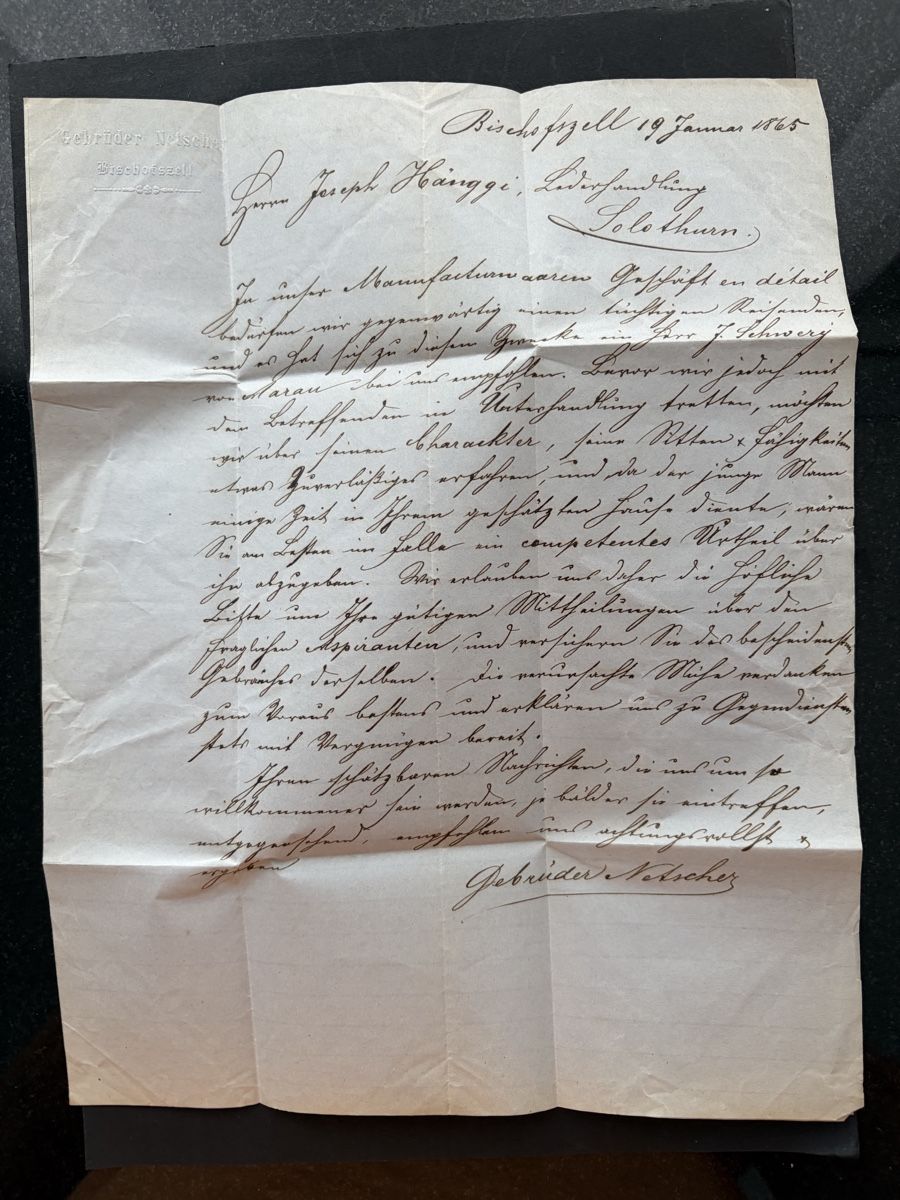 Gebrüder Netscher
Bischofszell
Bischofszell 19 Januar 1865
Herrn Joseph Hänggi, Lederhandlung
Solothurn.
In unser Manufacturwaaren Geschäft en détail
bedürfen wir gegenwärtig einen tüchtigen Reisenden,
und es hat sich zu diesem Zwecke ein Herr J. Schwery
von Aarau bei uns empfohlen. Bevor wir jedoch mit
dem Betreffenden in Unterhandlung tretten, möchten
wir über seinen Charackter, seine Sitten & Fähigkeiten
etwas Zuverläßiges erfahren, und da der junge Mann
einige Zeit in Ihrem geschätzten Hause diente, wären
Sie am Besten im Falle ein competentes Urtheil über
ihn abzugeben. Wir erlauben uns daher die höfliche
Bitte um Ihre gütigen Mittheilungen über den
fraglichen Aspiranten, und versichern Sie des bescheidensten
Gebrauches derselben. Die verursachte Mühe verdanken
zum Voraus bestens und erklären uns zu Gegendiensten
stets mit Vergnügen bereit.
Ihren schätzbaren Nachrichten, die uns um so
willkommener sein werden, je bälder sie eintreffen,
entgegensehend, empfehlen uns achtungsvollst &
ergeben
Gebrüder Netscher